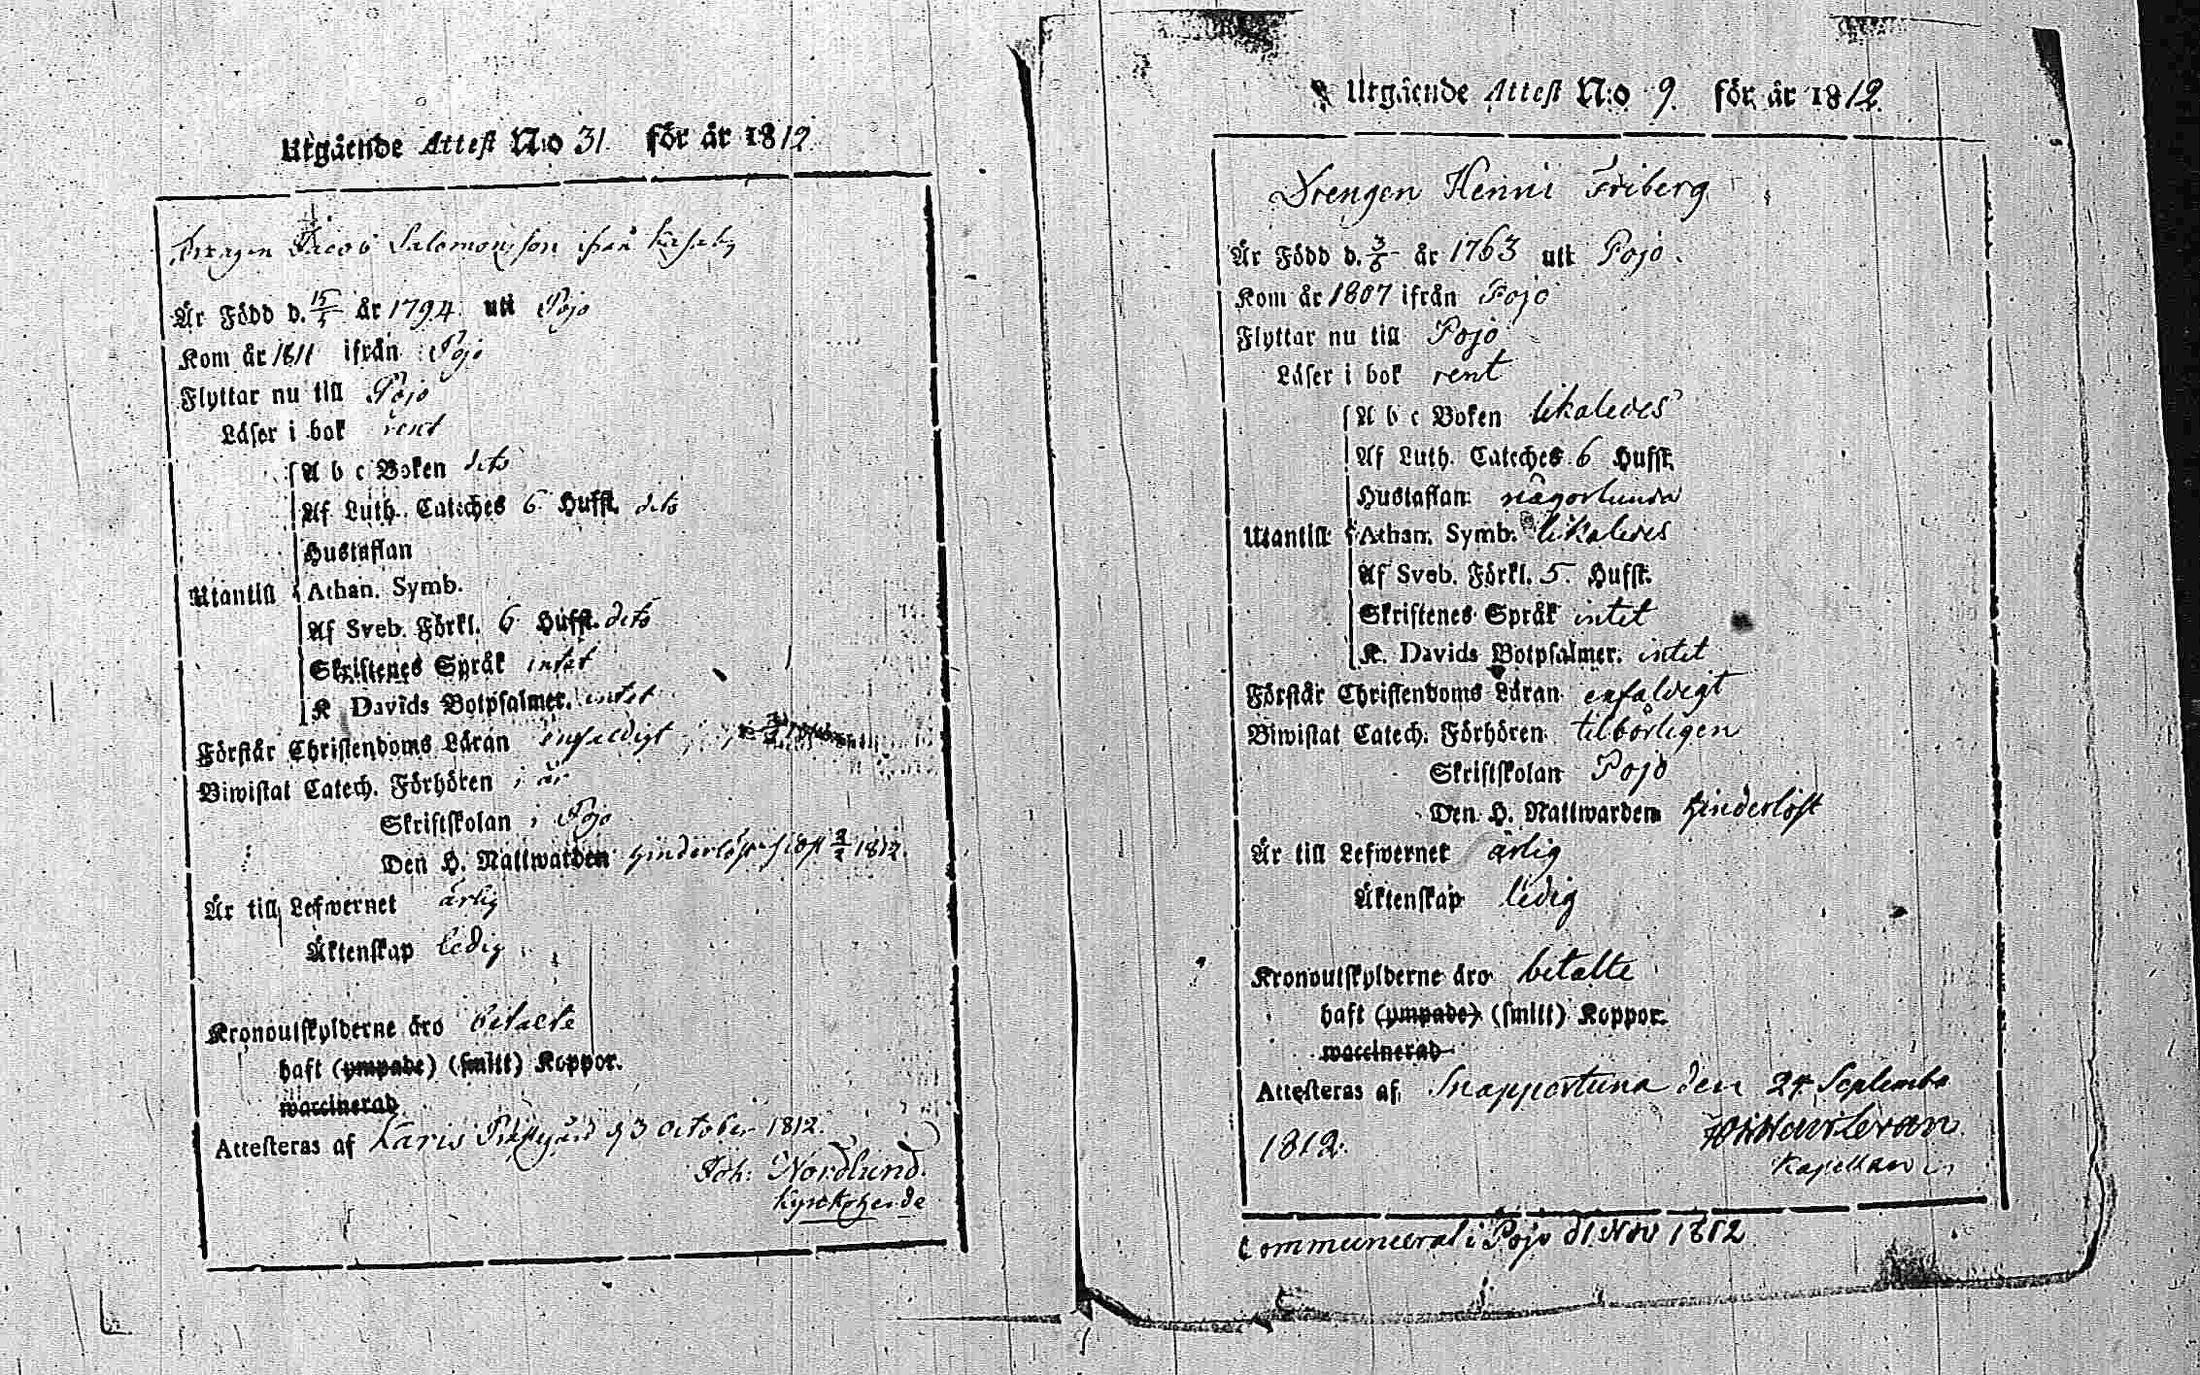 Utgående Attest N:o 31. för år 1812.
Drengen Jacob Salomonsson ifrån
Är Född d. 15/5 år 1794 uti Pojo
Kom år 1811 ifrån Pojo
Flyttar nu till Pojo
Läser i bok rent
A b c Boken dito
Af Luth. Cateches 6 Hufst. dito
Hustaflan
Utantill Athan. Symb.
Af Sveb. Förkl. 6 Hufst. dito
Skriftenes Språk intet
K Davids Botpsalmer. intet
Förstår Christendoms Läran enfaldigt
Biwistat Catech. Förhören i år
Skriftskolan i Pojo
Den H. Nattwarden hinderlöst sidst 1812.
Är till Lefwernet ärlig
Äktenskap ledig
Kronoutskylderne äro betalte
haft (ympade) (smitt) Koppor.
waccinerad
Attesteras af Karis Prästgård d 3 October 1812.
Joh: Nordlund.
Kyrckoherde
Utgående Attest N:o 9. för år 1812.
Drengen Henric Friberg
Är Född d. 3/6 år 1763 uti Pojo.
Kom år 1807 ifrån Pojo
Flyttar nu till Pojo
Läser i bok rent
A b c Boken likaledes
Af Luth. Cateches 6 Hufst.
Hustaflan någorlunda
Utantill Athan. Symb. likaledes
Af Sveb. Förkl. 5. Hufst.
Skriftenes Språk intet
K. Davids Botpsalmer. intet
Förstår Christendoms Läran enfaldigt
Biwistat Catech. Förhören tilbörligen
Skriftskolan Pojo
Den H. Nattwarden hinderlöst
Är till Lefwernet ärlig
Äktenskap ledig
Kronoutskylderne äro betalte
haft (ympade) (smitt) Koppor.
waccinerad
Attesteras af Snappertuna den 24 Septembr
1812.
Kapellan
Communicerat i Pojo d 1 Nov 1812